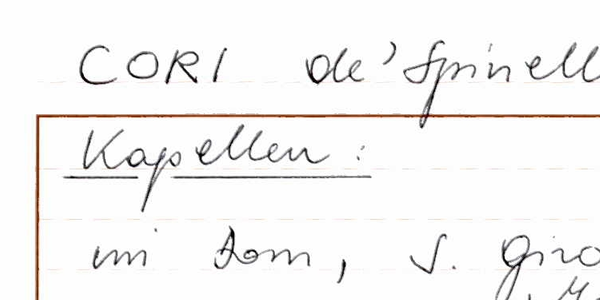 CORI de' Spinell
Kapellen :
im Dom, S. Giro